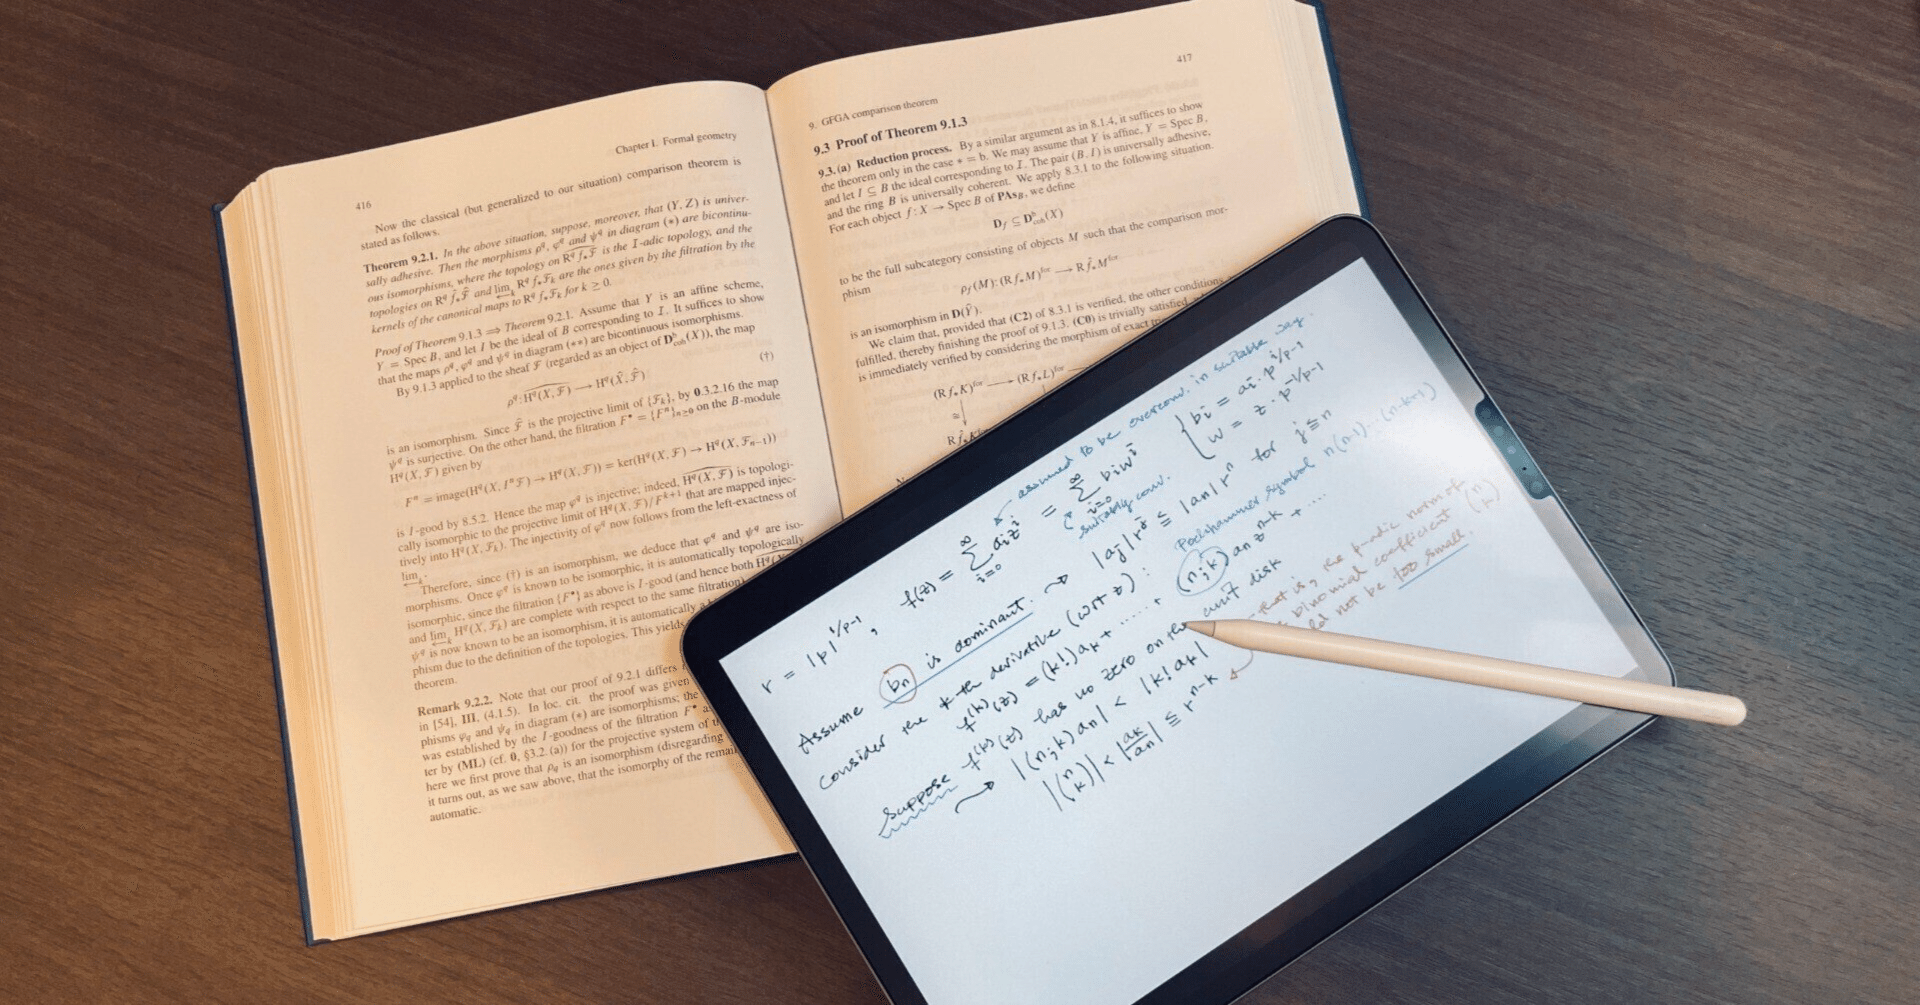 416
Chapter I. Formal geometry
Now the classical (but generalized to our situation) comparison theorem is
stated as follows.
Theorem 9.2.1. In the above situation, suppose, moreover, that (Y, Z) is univer-
sally adhesive. Then the morphisms ρ^q, φ^q and ψ^q in diagram (∗) are bicontinu-
ous isomorphisms, where the topology on R^q f_∗F is the I-adic topology, and the
topologies on R^q f̂_∗F̂ and lim_k R^q f_∗F_k are the ones given by the filtration by the
kernels of the canonical maps to R^q f_∗F_k for k ≥ 0.
Proof of Theorem 9.1.3 ⟹ Theorem 9.2.1. Assume that Y is an affine scheme,
Y = Spec B, and let I be the ideal of B corresponding to I. It suffices to show
that the maps ρ^q, φ^q and ψ^q in diagram (∗∗) are bicontinuous isomorphisms.
By 9.1.3 applied to the sheaf F (regarded as an object of D^b_coh(X)), the map
ρ^q: H^q(X, F) ⟶ H^q(X̂, F̂) (†)
is an isomorphism. Since F̂ is the projective limit of {F_k}, by 0.3.2.16 the map
ψ^q is surjective. On the other hand, the filtration F^• = {F^n}_{n≥0} on the B-module
H^q(X, F) given by
F^n = image(H^q(X, I^nF) → H^q(X, F)) = ker(H^q(X, F) → H^q(X, F_{n−1}))
is I-good by 8.5.2. Hence the map φ^q is injective; indeed, H^q(X, F) is topologi-
cally isomorphic to the projective limit of H^q(X, F)/F^{k+1} that are mapped injec-
tively into H^q(X, F_k). The injectivity of φ^q now follows from the left-exactness of
lim_k.
Therefore, since (†) is an isomorphism, we deduce that φ^q and ψ^q are iso-
morphisms. Once φ^q is known to be isomorphic, it is automatically topologically
isomorphic, since the filtration {F^•} as above is I-good (and hence both H^q(X
and lim_k H^q(X, F_k) are complete with respect to the same filtration)
ψ^q is now known to be an isomorphism, it is automatically a
phism due to the definition of the topologies. This yields
theorem.
Remark 9.2.2. Note that our proof of 9.2.1 differs
in [54], III, (4.1.5). In loc. cit. the proof was given
phisms φ_q and ψ_q in diagram (∗) are isomorphisms; the
was established by the I-goodness of the filtration F^•
ter by (ML) (cf. 0, §3.2.(a)) for the projective system of
here we first prove that ρ_q is an isomorphism (disregarding
it turns out, as we saw above, that the isomorphy of the remai
automatic.
417
9. GFGA comparison theorem
9.3 Proof of Theorem 9.1.3
9.3.(a) Reduction process. By a similar argument as in 8.1.4, it suffices to show
the theorem only in the case ∗ = b. We may assume that Y is affine, Y = Spec B,
and let I ⊆ B the ideal corresponding to I. The pair (B, I) is universally adhesive,
and the ring B is universally coherent. We apply 8.3.1 to the following situation.
For each object f: X → Spec B of PAs_B, we define
D_f ⊆ D^b_coh(X)
to be the full subcategory consisting of objects M such that the comparison mor-
phism
ρ_f(M): (Rf_∗M)^for ⟶ Rf̂_∗M^for
is an isomorphism in D(Ŷ).
We claim that, provided that (C2) of 8.3.1 is verified, the other conditions
fulfilled, thereby finishing the proof of 9.1.3. (C0) is trivially satisfied,
is immediately verified by considering the morphism of exact
(Rf_∗K)^for ⟶ (Rf_∗L)^for
≅
Rf̂_∗K
assumed to be overconv. in suitable way.
r = |p|^{1/p-1}, f(z) = ∑_{i=0}^∞ a_i z^i = ∑_{i=0}^∞ b_i w^i { b_i = a_i·p^{i/p-1}
w = z·p^{-1/p-1}
suitably conv.
Assume b_n is dominant. ⤳ |a_j| r^j ≦ |a_n| r^n for j ≦ n
Consider the k-th derivative (wrt z): Pochhammer symbol n(n-1)···(n-k+1)
f^{(k)}(z) = (k!) a_k + ····· + (n;k) a_n z^{n-k} + ····
Suppose f^{(k)}(z) has no zero on the unit disk
⤳ |(n;k) a_n| < |k! a_k|
|(n k)| < |a_k/a_n| ≦ r^{n-k}
that is, the p-adic norm of
binomial coefficient (n k)
not be too small.